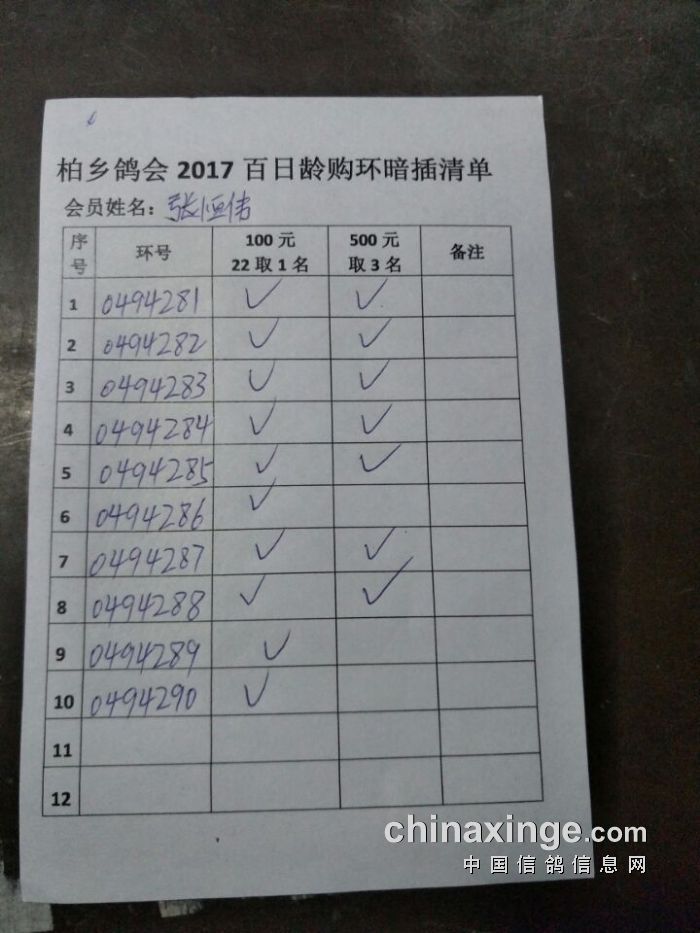 柏乡鸽会 2017 百日龄购环暗插清单
会员姓名：张恒伟
序号 环号 100 元 22 取 1 名 500 元 取 3 名 备注
1 0494281 ✓ ✓
2 0494282 ✓ ✓
3 0494283 ✓ ✓
4 0494284 ✓ ✓
5 0494285 ✓ ✓
6 0494286 ✓
7 0494287 ✓ ✓
8 0494288 ✓ ✓
9 0494289 ✓
10 0494290 ✓
11
12
chinaxinge.com
中国信鸽信息网